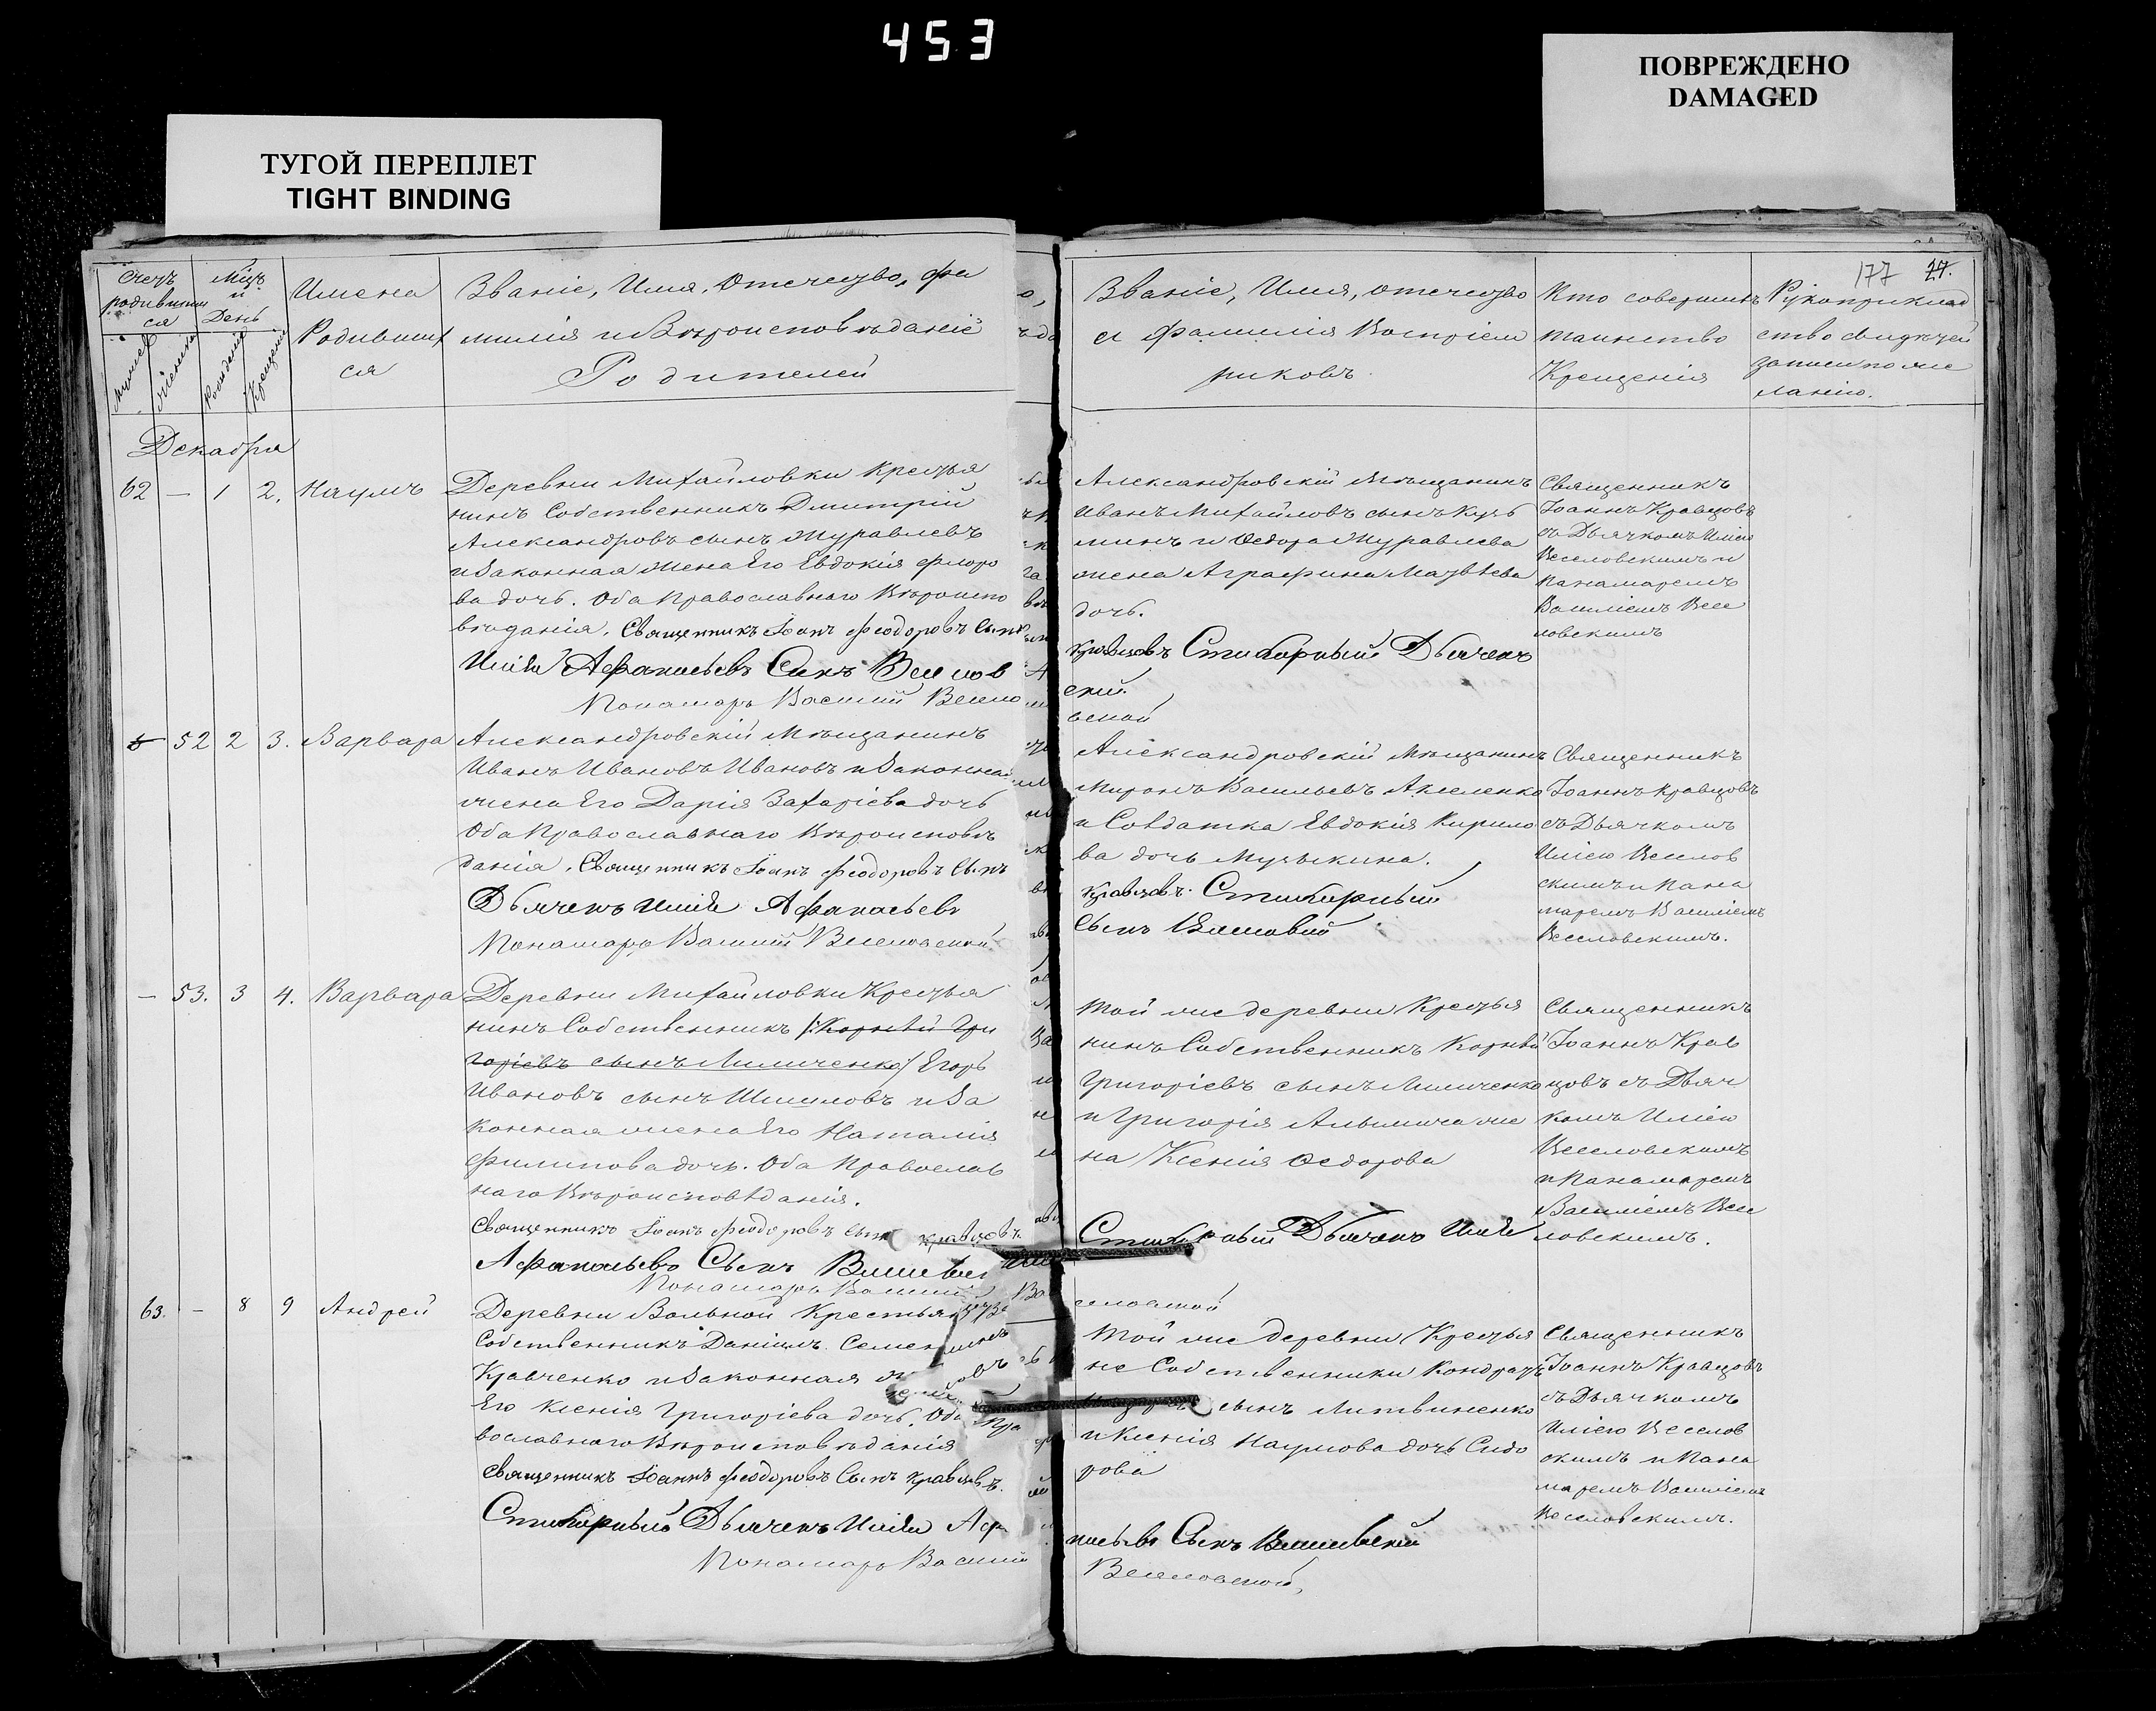 453
ПОВРЕЖДЕНО
DAMAGED
ТУГОЙ ПЕРЕПЛЕТ
TIGHT BINDING
177 27.
Счетъ
родивших
ся
Мцъ
и
День
Имена
Родивших
ся
Званіе, Имя, Отечество, фа
милія и Вѣроисповѣданіе
Родителей
Рожденія
Крещенія
Званіе, Имя, отечество
и фамилія Воспріем
никовъ
Кто совершилъ
таинство
Крещенія
Рукоприклад
ство свидѣтелей
записи по же
ланію.
Декабря
62 — 1 2. Наумъ
Деревни Михайловки Крестья
нинъ Собственникъ Дмитрій
Александровъ сынъ Журавлевъ
и Законная жена Его Евдокія Флоро
ва дочь. Оба Православнаго Вѣроиспо
вѣданія. Священникъ Іоанъ Феодоровъ Сынъ
Илія Афанасьевъ Сынъ Веслов
Понамарь Василий Весело
Александровскій Мѣщанинъ
Иванъ Михайловъ сынъ Кузь
минъ и Федора Журавлева
жена Аграфина Матвѣева
дочь.
Кравцовъ Стихарный Дьячекъ
ский.
вской
Священникъ
Іоаннъ Кравцовъ
съ Дьячкомъ Иліею
Веселовскимъ и
Панамаремъ
Василіемъ Весе
ловскимъ
52 2 3. Варвара
Александровскій Мѣщанинъ
Иванъ Ивановъ Ивановъ и Законная
жена Его Дарія Захаріева дочь
Оба Православнаго Вѣроисповѣ
данія. Священникъ Іоанъ Феодоровъ Сынъ
Дьячекъ Илія Афанасьевъ
Понамарь Василий Веселовской
Александровскій Мѣщанинъ
Миронъ Васильевъ Акселенко
и Солдатка Евдокія Кирило
ва дочь Музыкина.
Кравцовъ. Стихарный
Сынъ
Священникъ
Іоаннъ Кравцовъ
съ Дьячкомъ
Иліею Веселов
скимъ и Пана
маремъ Василіемъ
Веселовскимъ.
— 53. 3 4. Варвара
Деревни Михайловки Крестья
нинъ Собственникъ /Корнѣй Гри
горіевъ сынъ Лимиченко/ Егоръ
Ивановъ сынъ Шишловъ и За
конная жена Его Наталія
Филипова дочь. Оба Православ
наго Вѣроисповѣданія.
Священникъ Іоанъ Феодоровъ сынъ Кравцовъ.
Афанасьевъ Сынъ
Понамарь Василий
Той же деревни Крестья
нинъ Собственникъ Корнѣй
Григоріевъ сынъ Лимиченко
и Григорія же
на Ксенія Федорова
Стихарный Дьячекъ Илія
Священникъ
Іоаннъ Крав
цовъ съ Дьяч
комъ Иліею
Веселовскимъ
и Панамаремъ
Василіемъ Весе
ловскимъ.
63. — 8 9 Андрей
Деревни Вольной Крестьян
Собственникъ Даніилъ Семен
Кравченко и Законная
Его Ксенія Григоріева дочь. Оба Пра
вославнаго Вѣроисповѣданія
Священникъ Іоаннъ Феодоровъ Сынъ Кравцовъ.
Стихарный Дьячекъ Илія Афа
Понамарь Василий
селовской
Той же деревни Крестья
не Собственники Кондратъ
сынъ Литвиненко
и Ксенія Наумова дочь Сидо
рова
насьевъ Сынъ
Веселовской,
Священникъ
Іоаннъ Кравцовъ
съ Дьячкомъ
Иліею Веселов
скимъ и Пана
маремъ Василіемъ
Веселовскимъ.